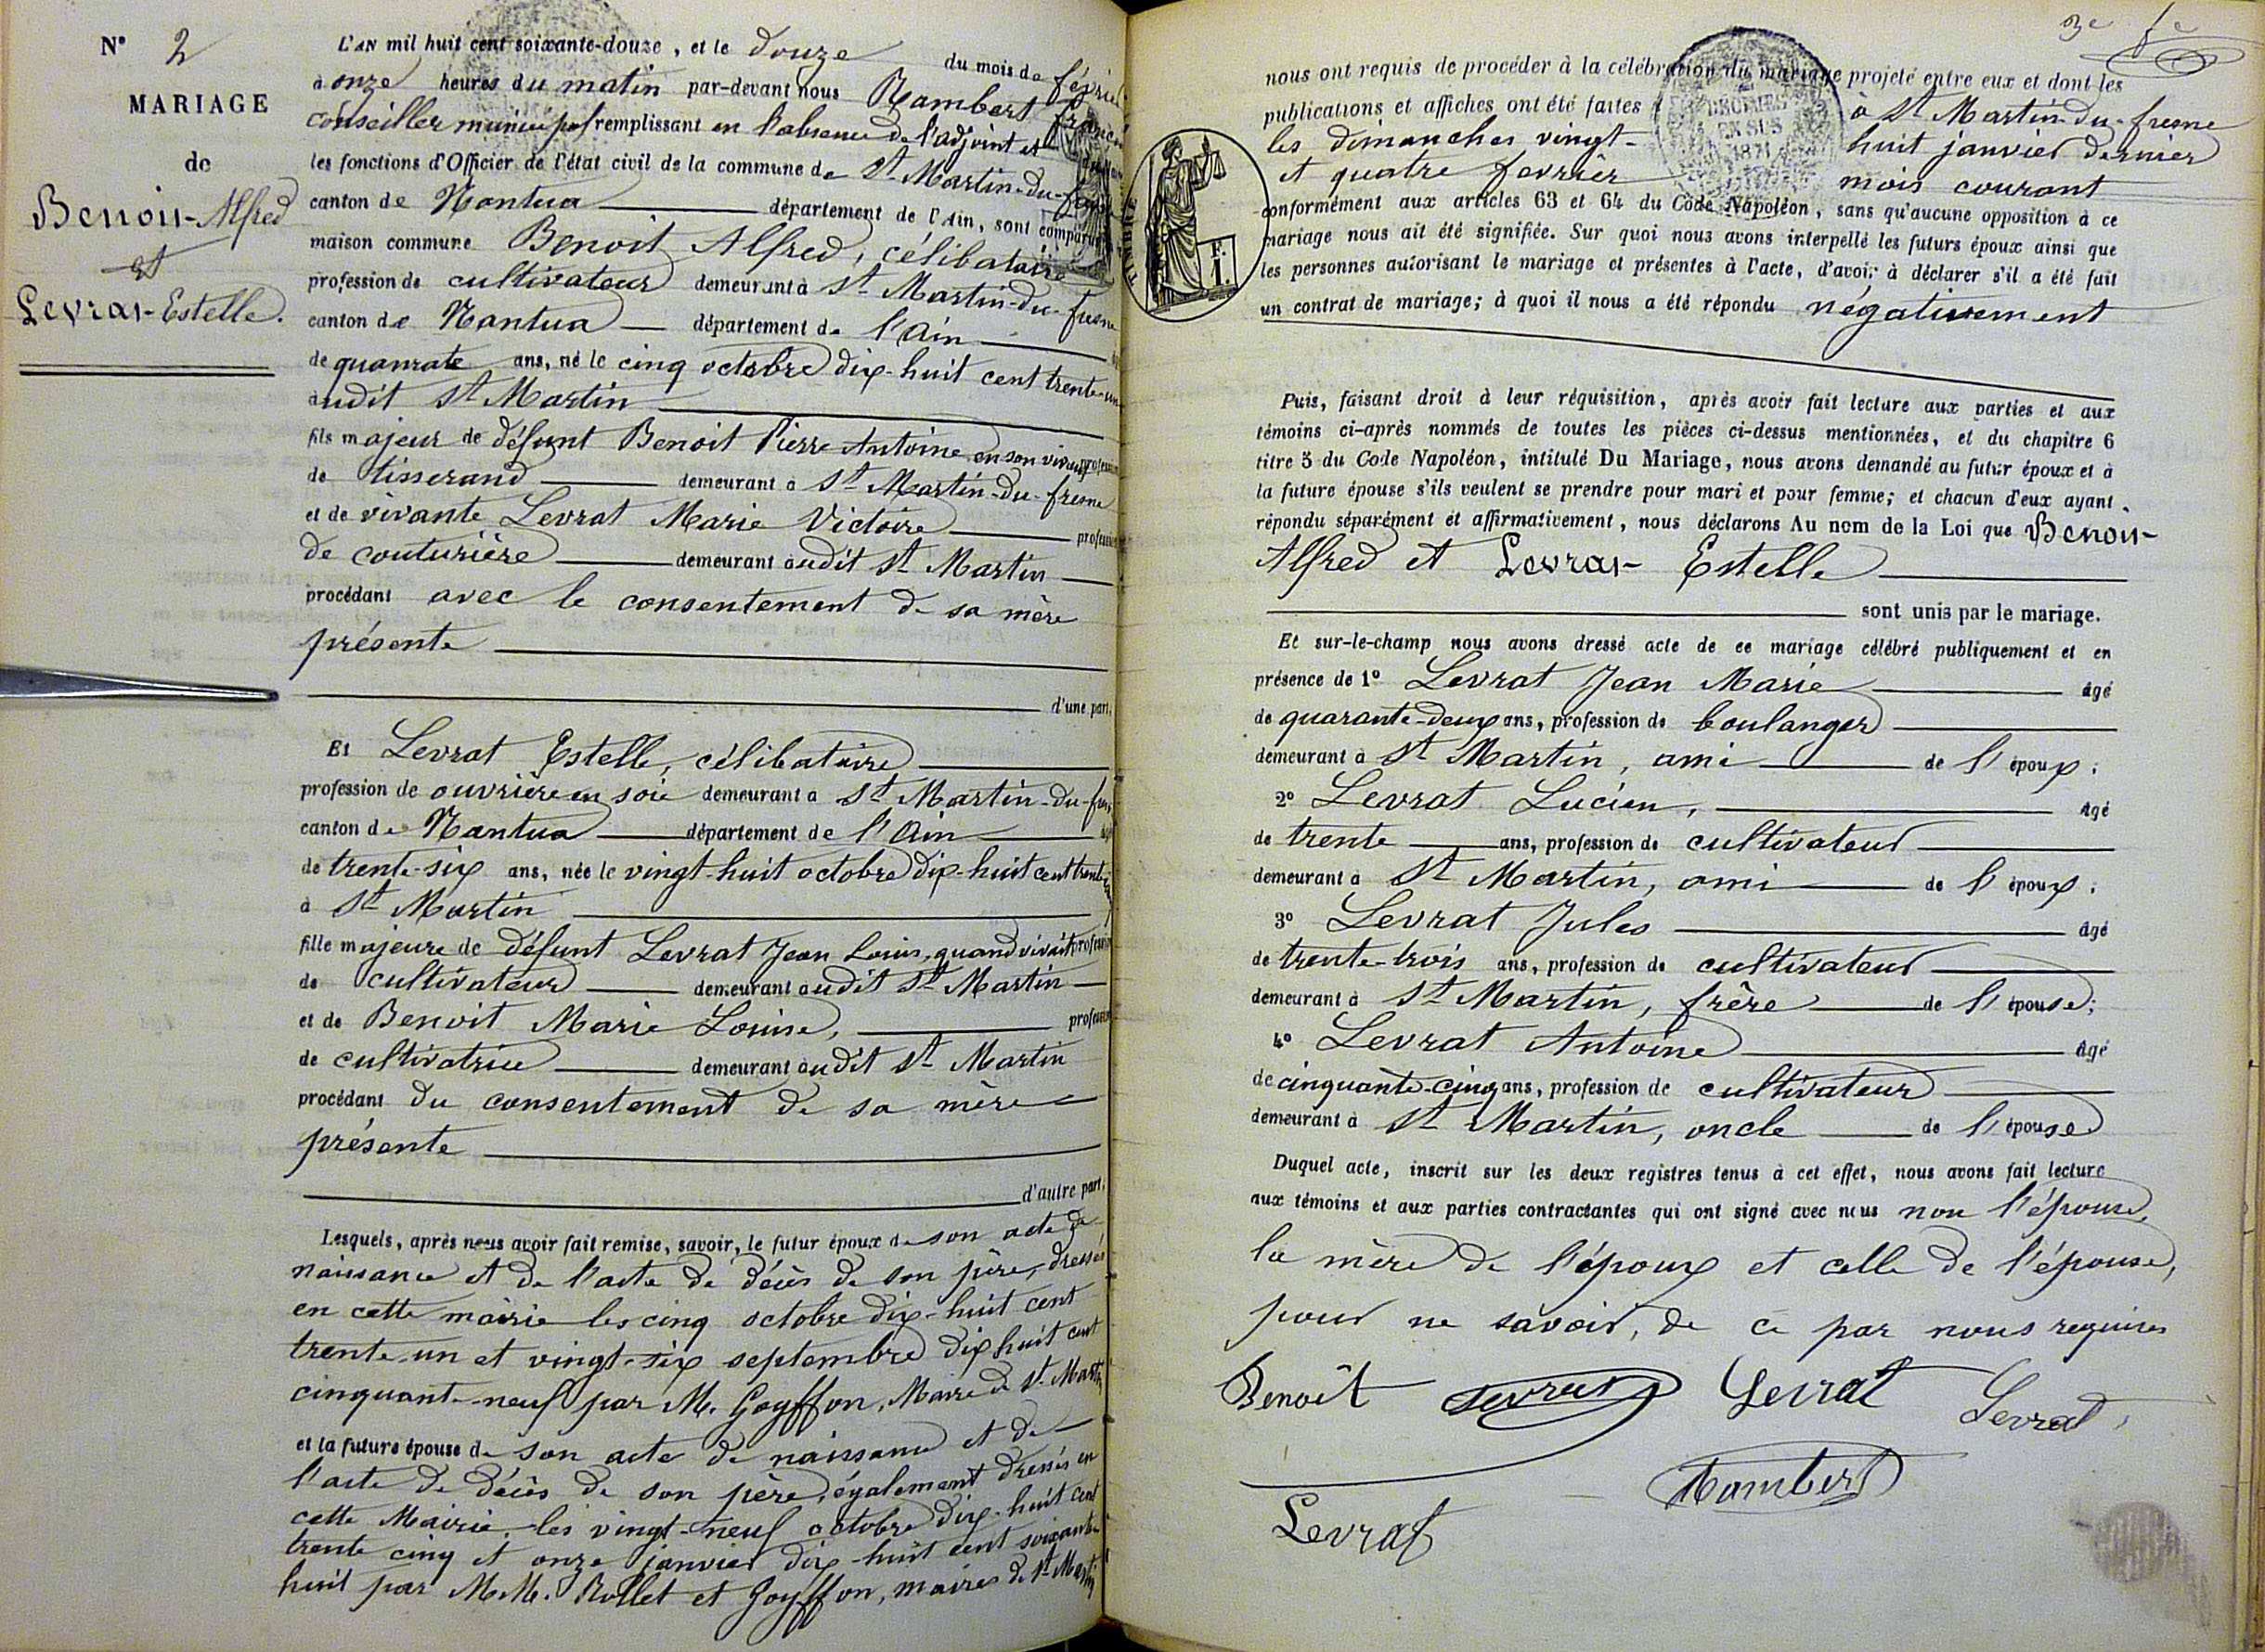 N° 2
MARIAGE
de
Benoit-Alfred
et
Levrat-Estelle.
L'AN mil huit cent soixante-douze, et le douze du mois de février
à onze heures du matin par-devant nous Rambert
conseiller municipal remplissant en l'absence de l'adjoint et
les fonctions d'Officier de l'état civil de la commune de St Martin-du-fresne
canton de Nantua département de l'Ain, sont comparus
maison commune Benoit Alfred, célibataire
profession de cultivateur demeurant à St Martin-du-fresne
canton de Nantua département de l'Ain
de quanrate ans, né le cinq octobre dix-huit cent trente-un
audit St Martin
fils majeur de défunt Benoit Pierre Antoine en son vivant profession
de tisserand demeurant à St Martin-du-fresne
et de vivante Levrat Marie Victoire profession
de couturière demeurant audit St Martin
procédant avec le consentement de sa mère
présente
d'une part,
Et Levrat Estelle, célibataire
profession de ouvrière en soie demeurant à St Martin-du-fres
canton de Nantua département de l'Ain âgé
de trente-six ans, née le vingt-huit octobre dix-huit cent trente
à St Martin
fille majeure de défunt Levrat Jean Louis, quand vivait profession
de cultivateur demeurant audit St Martin
et de Benoit Marie Louise, profession
de cultivatrice demeurant audit St Martin
procédant du consentement de sa mère
présente
d'autre part.
Lesquels, après nous avoir fait remise, savoir, le futur époux de son acte de
naissance et de l'acte de décès de son père, dressés
en cette mairie les cinq octobre dix-huit cent
trente-un et vingt-six septembre dix huit cent
cinquant-neuf par M. Goyffon, Maire de St Martin
et la future épouse de son acte de naissance et de
l'acte de décès de son père, également dressés en
cette Mairie, les vingt-neuf octobre dix-huit cent
trente cinq et onze janvier dix-huit cent soixante
huit par M.M. Rollet et Goyffon, maires de St Martin
3e f
nous ont requis de procéder à la célébration du mariage projeté entre eux et dont les
publications et affiches ont été faites à St Martin-du-fresne
les dimanches vingt-huit janvier dernier
et quatre fevrier mois courant
conformément aux articles 63 et 64 du Code Napoléon, sans qu'aucune opposition à ce
mariage nous ait été signifiée. Sur quoi nous avons interpellé les futurs époux ainsi que
les personnes autorisant le mariage et présentes à l'acte, d'avoir à déclarer s'il a été fait
un contrat de mariage; à quoi il nous a été répondu négativement
Puis, faisant droit à leur réquisition, après avoir fait lecture aux parties et aux
témoins ci-après nommés de toutes les pièces ci-dessus mentionnées, et du chapitre 6
titre 5 du Code Napoléon, intitulé Du Mariage, nous avons demandé au futur époux et à
la future épouse s'ils veulent se prendre pour mari et pour femme; et chacun d'eux ayant
répondu séparément et affirmativement, nous déclarons Au nom de la Loi que Benoit
Alfred et Levrat Estelle
sont unis par le mariage.
Et sur-le-champ nous avons dressé acte de ce mariage célébré publiquement et en
présence de 1° Levrat Jean Marie âgé
de quarante-deux ans, profession de boulanger
demeurant à St Martin, ami de l'époux;
2° Levrat Lucien, âgé
de trente ans, profession de cultivateur
demeurant à St Martin, ami de l'époux;
3° Levrat Jules âgé
de trente-trois ans, profession de cultivateur
demeurant à St Martin, frère de l'épouse;
4° Levrat Antoine âgé
de cinquante-cinq ans, profession de cultivateur
demeurant à St Martin, oncle de l'épouse
Duquel acte, inscrit sur les deux registres tenus à cet effet, nous avons fait lecture
aux témoins et aux parties contractantes qui ont signé avec nous non l'épouse,
la mère de l'époux et celle de l'épouse,
pour ne savoir, de ce par nous requises
Benoît Levrat Levrat Levrat
Rambert
Levrat